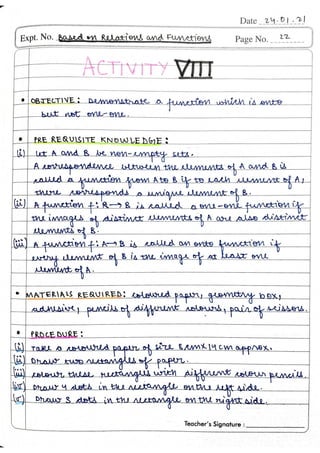 Date 24.01.21
Expt. No. Based on Relations and Functions Page No. 22
ACTIVITY VIII
• OBJECTIVE: Demonstrate a function which is onto
but not one-one.
• PRE REQUISITE KNOWLEDGE:
(i) Let A and B be non-empty sets.
A correspondence between the elements of A and B is
called a function from A to B if to each element of A,
there corresponds a unique element of B.
(ii) A function f: R→B is called a one-one function if
the images of distinct elements of A are also distinct
elements of B.
(iii) A function f: A→B is called an onto function if
every element of B is the image of at least one
element of A.
• MATERIALS REQUIRED: coloured paper, geometry box,
adhesive, pencils of different colours, pair of scissors.
• PROCEDURE:
(i) Take a coloured paper of size 8cm×14cm approx.
(ii) Draw two rectangles of paper.
(iii) Colour these rectangles with different colour pencils.
(iv) Draw 4 dots in the rectangle on the left side.
(v) Draw 3 dots in the rectangle on the right side.
Teacher's Signature :